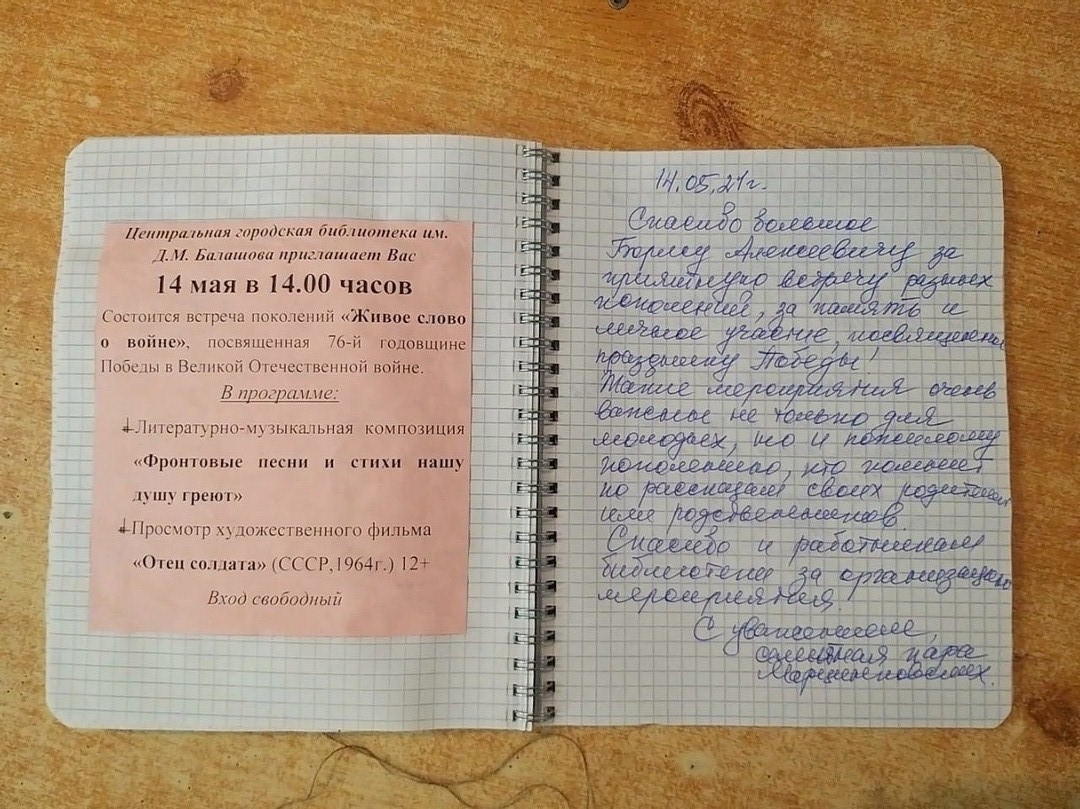 Центральная городская библиотека им.
Д.М. Балашова приглашает Вас
14 мая в 14.00 часов
Состоится встреча поколений «Живое слово
о войне», посвященная 76-й годовщине
Победы в Великой Отечественной войне.
В программе:
Литературно-музыкальная композиция
«Фронтовые песни и стихи нашу
душу греют»
Просмотр художественного фильма
«Отец солдата» (СССР,1964г.) 12+
Вход свободный
14.05.21г.
Спасибо большое
Борису Алексеевичу за
приятную встречу разных
поколений, за память и
личное участие, посвящение
празднику Победы!
Такие мероприятия очень
важные не только для
молодых, но и пожилому
поколению, кто помнит
по рассказам своих родителей
или родственников.
Спасибо и работникам
библиотеки за организацию
мероприятия.
С уважением,
семейная пара